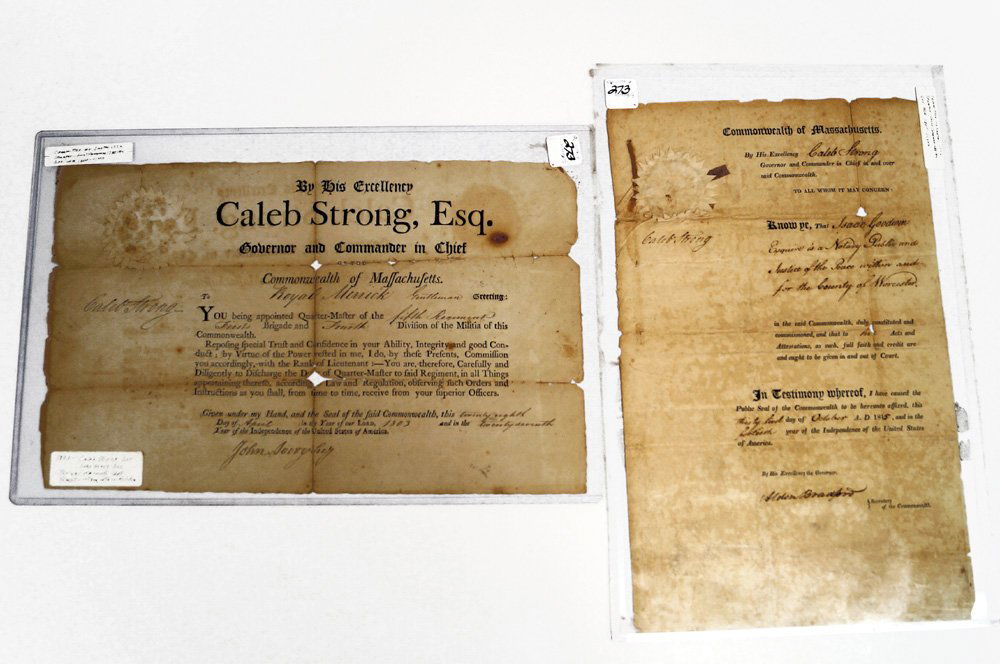 273
By His Excellency
Caleb Strong, Esq.
Governor and Commander in Chief
OF THE
Commonwealth of Maſſachuſetts.
To Royal Merrick Gentleman Greeting:
Caleb Strong
YOU being appointed Quarter-Maſter of the fifth Regiment
Brigade and Fourth Diviſion of the Militia of this
Commonwealth.
Repoſing ſpecial Truſt and Confidence in your Ability, Integrity and good Con-
duct, by Virtue of the Power veſted in me, I do, by theſe Preſents, Commiſſion
you accordingly, with the Rank of Lieutenant:—You are, therefore, Carefully and
Diligently to Diſcharge the D of Quarter-Maſter to ſaid Regiment, in all Things
appertaining thereto, accord Law and Regulation, obſerving ſuch Orders and
Inſtructions as you ſhall, from time to time, receive from your ſuperior Officers.
Given under my Hand, and the Seal of the ſaid Commonwealth, this twenty eighth
Day of April in the Year of our LORD, 1803 and in the twenty seventh
Year of the Independence of the United States of America.
John
273
Commonwealth of Massachusetts.
By His Excellency Caleb Strong
Governor and Commander in Chief in and over
said Commonwealth.
TO ALL WHOM IT MAY CONCERN:
Caleb Strong
Know ye, That Isaac Goodwin
Esquire is a Notary Public and
Justice of the Peace within and
for the County of Worcester,
in the said Commonwealth, duly constituted and
commissioned, and that to his Acts and
Attestations, as such, full faith and credit are
and ought to be given in and out of Court.
In Testimony whereof, I have caused the
Public Seal of the Commonwealth to be hereunto affixed, this
thirty first day of October A. D. 1815, and in the
year of the Independence of the United States
of America.
By His Excellency the Governor.
Alden Bradford
Secretary
of the Commonwealth.